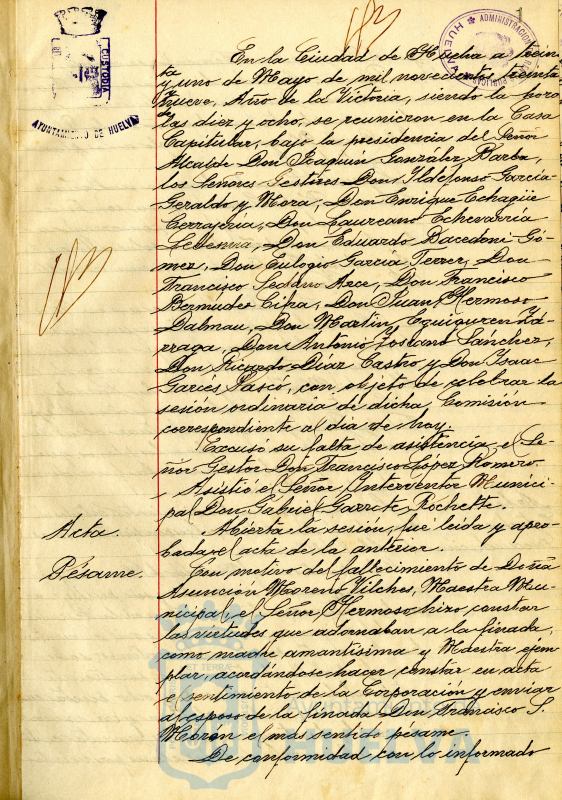 1
ADMINISTRACION
HUELVA
CUSTODIA
AYUNTAMIENTO DE HUELVA
En la Ciudad de Huelva a trein-
ta y uno de Mayo de mil novecientos treinta
y nueve, Año de la Victoria, siendo la hora
de las diez y ocho, se reunieron en la Casa
Capitular, bajo la presidencia del Señor
Alcalde Don Joaquin Gonzalez Barba,
los Señores Gestores Don Ildefonso García-
Geraldo y Mora, Don Enrique Echagüe
Cerrajería, Don Laureano Echevarria
Don Eduardo Bacedoni Gó-
mez, Don Eulogio García Ferrer, Don
Francisco Sedano Arce, Don Francisco
Bermúdez Cifra, Don Juan Hermoso
Dalmau, Don Martin Eguiguren Lá-
rraga, Don Antonio Toscano Sánchez,
Don Ricardo Díaz Castro y Don Isaac
Garcés Pascó, con objeto de celebrar la
sesión ordinaria de dicha Comisión
correspondiente al día de hoy.
Excusó su falta de asistencia el Se-
ñor Gestor Don Francisco López Romero.
Asistió el Señor Interventor Munici-
pal Don Gabriel Garrote Rochette.
Acta.
Abierta la sesión, fué leida y apro-
bada el acta de la anterior.
Pésame.
Con motivo del fallecimiento de Doña
Asunción Moreno Vilches, Maestra Mu-
nicipal, el Señor Hermoso hizo constar
las virtudes que adornaban a la finada,
como madre amantisima y Maestra ejem-
plar, acordándose hacer constar en acta
el sentimiento de la Corporación y enviar
al esposo de la finada Don Francisco S.
Moran el mas sentido pésame.
De conformidad con lo informado
Ayuntamiento
HUELVA